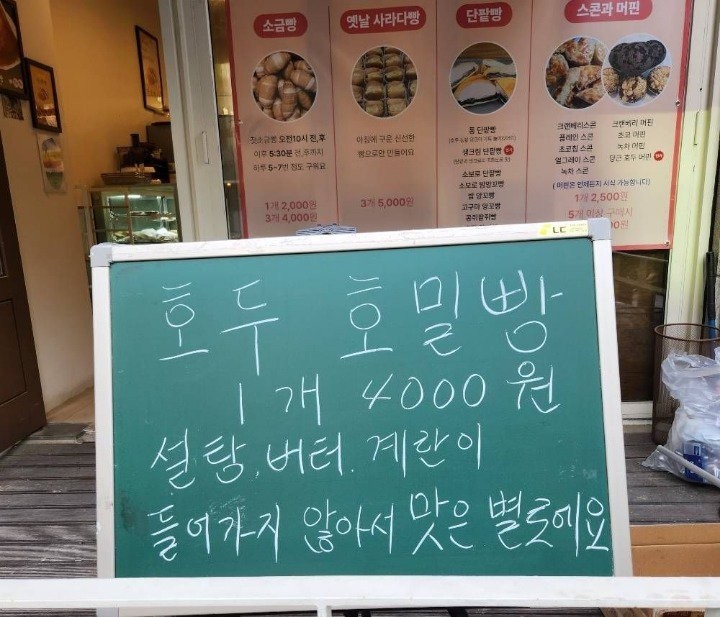 소금빵
옛날 사라다빵
단팥빵
스콘과 머핀
첫소금빵 오전10시 전,후
이후 5:30분 전,후까지
하루 5~7번 정도 구워요
1개 2,000원
3개 4,000원
아침에 구운 신선한
빵으로만 만들어요
3개 5,000원
통 단팥빵
생크림 단팥빵
소보로 단팥빵
소보로 밤팡꼬빵
밤 앙꼬빵
고구마 앙꼬빵
크랜베리스콘
플레인 스콘
초코칩 스콘
얼그레이 스콘
녹차 스콘
크랜베리 머핀
초코 머핀
녹차 머핀
당근 호두 머핀
( 머핀은 언제든지 시식 가능합니다)
1개 2,500원
5개 이상 구매시
호두 호밀빵
1개 4000원
설탕, 버터. 계란이
들어가지 않아서 맛은 별로에요